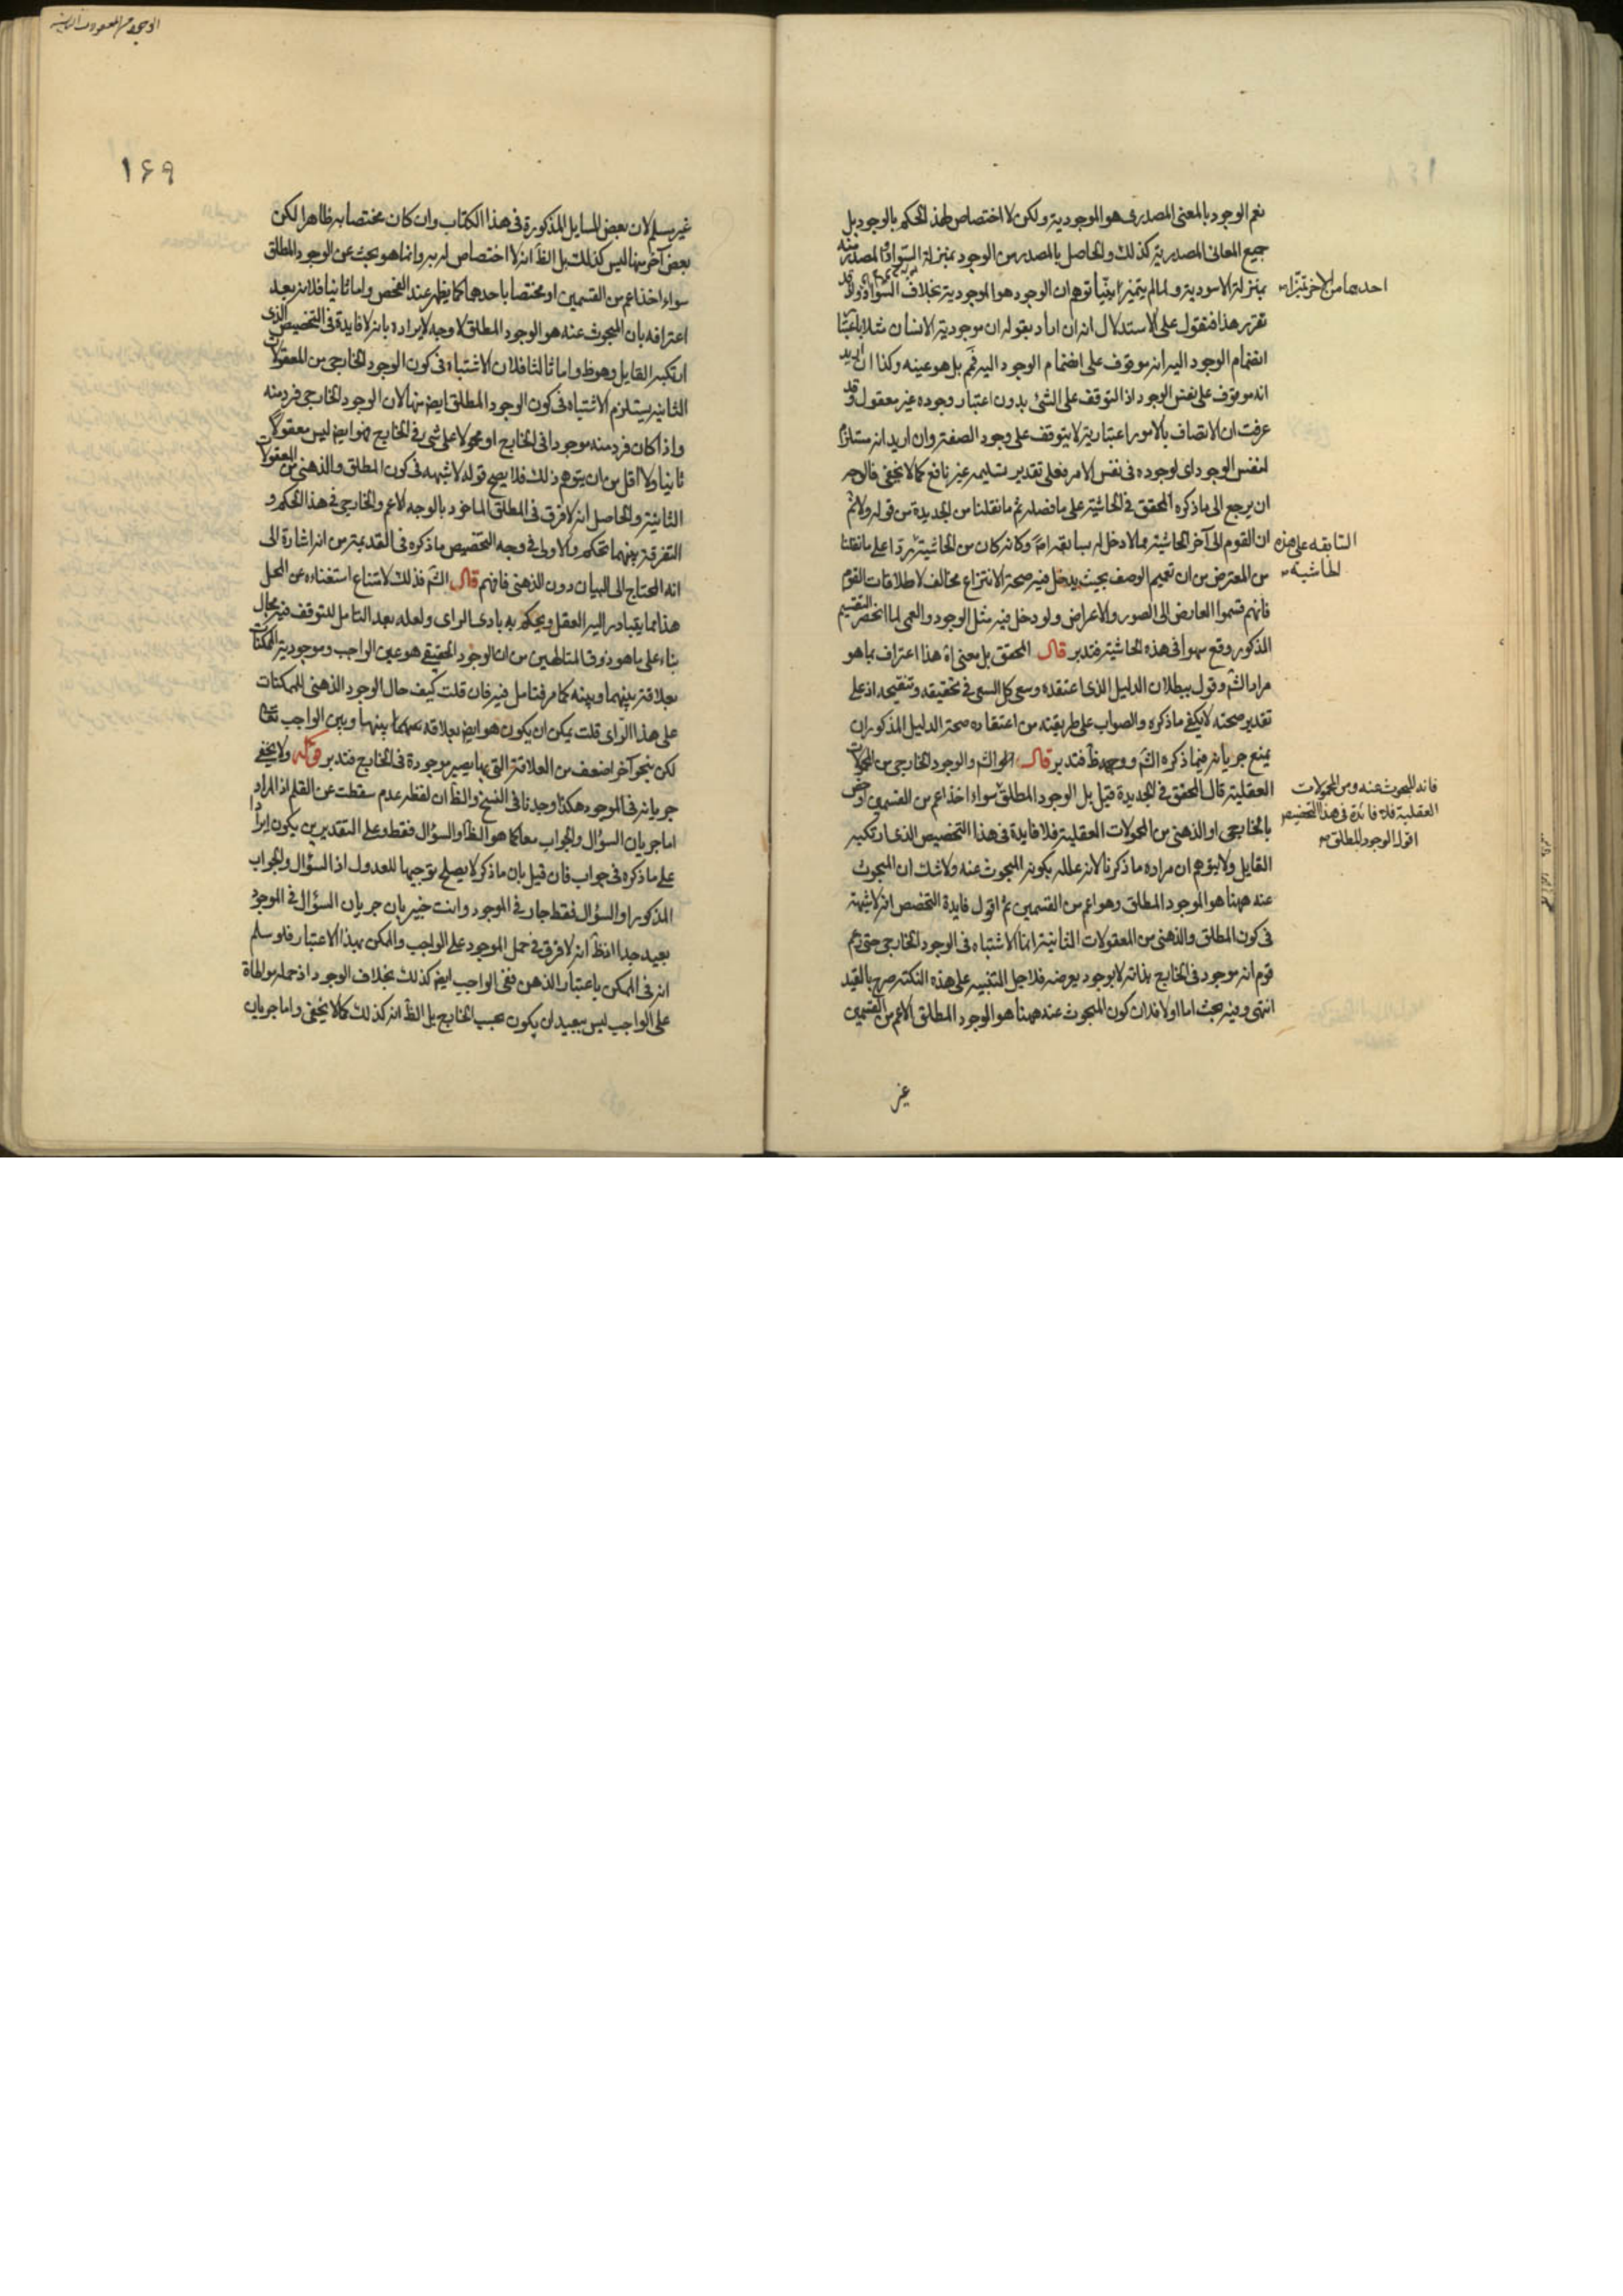 نعم الوجود بالمعنى المصدرى هو الموجودية ولكن لا اختصاص لهذا الحكم بالوجود بل
جميع المعانى المصدرية كذلك والحاصل بالمصدر من الوجود بمنزلة السواد والمصدر منه
بمنزلة الاسودية ولما لم يتميز توهم ان الوجود هو الموجودية بخلاف السواد واذ قد
احدهما من الاخر تميزا
تقرر هذا فنقول على الاستدلال انه ان اراد بقوله ان موجودية الانسان مثلا باعتبار
انضمام الوجود اليه انه موقوف على انضمام الوجود اليه فمم بل هو عينه وكذا ان اريد
انه موقوف على نفس الوجود اذ التوقف على الشئ بدون اعتبار وجوده غير معقول وقد
عرفت ان الاتصاف بالامور اعتبارية لا يتوقف على وجود الصفة وان اريد انه مستلزم
لنفس الوجود اى لوجوده فى نفس الامر فعلى تقدير تسليمه غير نافع كما لا يخفى فالوجه
ان يرجع الى ما ذكره المحقق فى الحاشية على ما فصله ثم ما نقلنا من الجديدة من قوله ولا ثم
ان القوم الى آخر الحاشية مما لا دخل له بسابقه وكانه كان من الحاشية ردا على ما نقلنا
السابقه على هذه
الحاشية
من المعترض من ان تعميم الوصف بحيث يدخل فيه صحة الانتزاع مخالف لاطلاقات القوم
فانهم قسموا العارض الى الصور والاعراض ولو دخل فيه مثل الوجود والعمى لما انحصر التقسيم
المذكور وقع سهوا فى هذه الحاشية فتدبر قال المحقق بل معناه هذا اعتراف بما هو
مراد الشم وقول ببطلان الدليل الذى اعتقده وسعى كل السعى فى تحقيقه وتنقيحه اذ على
تقدير صحته لا يكفى ما ذكره والصواب على طريقته من اعتقاده صحة الدليل المذكور ان
يمنع جريانه فيما ذكره الشم ووجهه ظ فتدبر قال الشم والوجود الخارجى من المحمولات
العقلية قال المحقق فى الجديدة قيل بل الوجود المطلق سواء اخذ اعم من القسمين او خص
بالخارجى او الذهنى من المحمولات العقلية فلا فايدة فى هذا التخصيص الذى ارتكبه
فانه المبحوث عنه ومن المحمولات
العقلية فلا فائدة فى هذا التخصيص
اقول الوجود المطلق
القايل ولا يتوهم ان مراده ما ذكرنا لانه علله بكونه المبحوث عنه ولا شك ان المبحوث
عنه ههنا هو الموجود المطلق وهو اعم من القسمين ثم اقول فايدة التخصيص انه لا شبهة
فى كون المطلق والذهنى من المعقولات الثانية انما الاشتباه فى الوجود الخارجى حتى زعم
قوم انه موجود فى الخارج بذاته لا بوجود يعرضه فلاجل التنبيه على هذه النكتة صرح بالقيد
انتهى وفيه بحث اما اولا فلان كون المبحوث عنه ههنا هو الوجود المطلق الاعم من القسمين
غير
١۶٩
غير مسلم لان بعض المسايل المذكورة فى هذا الكتاب وان كان مختصا به ظاهرا لكن
بعض آخر منها ليس كذلك بل الظ انه لا اختصاص له به وانما هو بحث عن الوجود المطلق
سواء اخذ اعم من القسمين او مختصا باحدهما كما يظهر عند الفحص واما ثانيا فلانه بعد
اعترافه بان المبحوث عنه هو الوجود المطلق لا وجه لايراده بانه لا فايدة فى التخصيص الذى
ارتكبه القايل وهو ظ واما ثالثا فلان الاشتباه فى كون الوجود الخارجى من المعقولات
الثانية يستلزم الاشتباه فى كون الوجود المطلق ايض منها لان الوجود الخارجى فرد منه
واذا كان فرد منه موجودا فى الخارج او محمولا على شئ فى الخارج فهو ايض ليس معقولا
ثانيا ولا اقل من ان يتوهم ذلك فلا يصح قوله لا شبهه فى كون المطلق والذهنى من المعقولات
الثانية والحاصل انه لا فرق فى المطلق الماخوذ بالوجه الاعم والخارجى فى هذا الحكم و
التفرقة بينهما تحكم والاولى فى وجه التخصيص ما ذكره فى القديمة من انه اشارة الى
انه المحتاج الى البيان دون الذهنى فافهم قال الشم فذلك لامتناع استغناءه عن المحل
هذا مما يتبادر اليه العقل ويحكم به بادى الراى ولعله بعد التامل للتوقف فيه مجال
بناء على ما هو ذوق المتالهين من ان الوجود الحقيقى هو عين الواجب وموجودية الممكنات
بعلاقة بينهما وبينه كما مر فتامل فيه فان قلت كيف حال الوجود الذهنى للممكنات
على هذا الراى قلت يمكن ان يكون هو ايض بعلاقه بينها وبين الواجب تعالى
لكن بنحو آخر اضعف من العلاقة التى بها يصير موجودة فى الخارج فتدبر قوله ولا يخفى
جريانه فى الموجود هكذا وجدنا فى النسخ والظ ان لفظ عدم سقطت عن القلم اذ المراد
اما جريان السؤال والجواب معا كما هو الظ او السؤال فقط وعلى التقديرين يكون ايرادا
على ما ذكره فى جواب فان قيل بان ما ذكر لا يصلح توجيها للعدول اذ السؤال والجواب
المذكور او السؤال فقط جار فى الموجود وانت خبير بان جريان السؤال فى الموجود
بعيد جدا اذ ظ انه لا فرق فى حمل الموجود على الواجب والممكن بهذا الاعتبار فلو سلم
انه فى الممكن باعتبار الذهن ففى الواجب ايض كذلك بخلاف الوجود اذ حمله مواطاة
على الواجب ليس ببعيد ان يكون بحسب الخارج بل الظ انه كذلك كما لا يخفى واما جريان